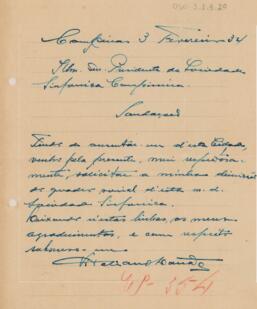 Campinas 3 Fevereiro 34
Illmo Snr Presidente da Sociedade
Sinfonica Campineira.
Saudações
Tendo de ausentar-me d'esta Cidade,
venho pela presente, mui respeitosa-
mente, solicitar a minha demissão
do quadro social d'esta m. d.
Sociedade Sinfonica.
Deixando n'estas linhas, os meus
agradecimentos, e com respeito
subscrevo-me